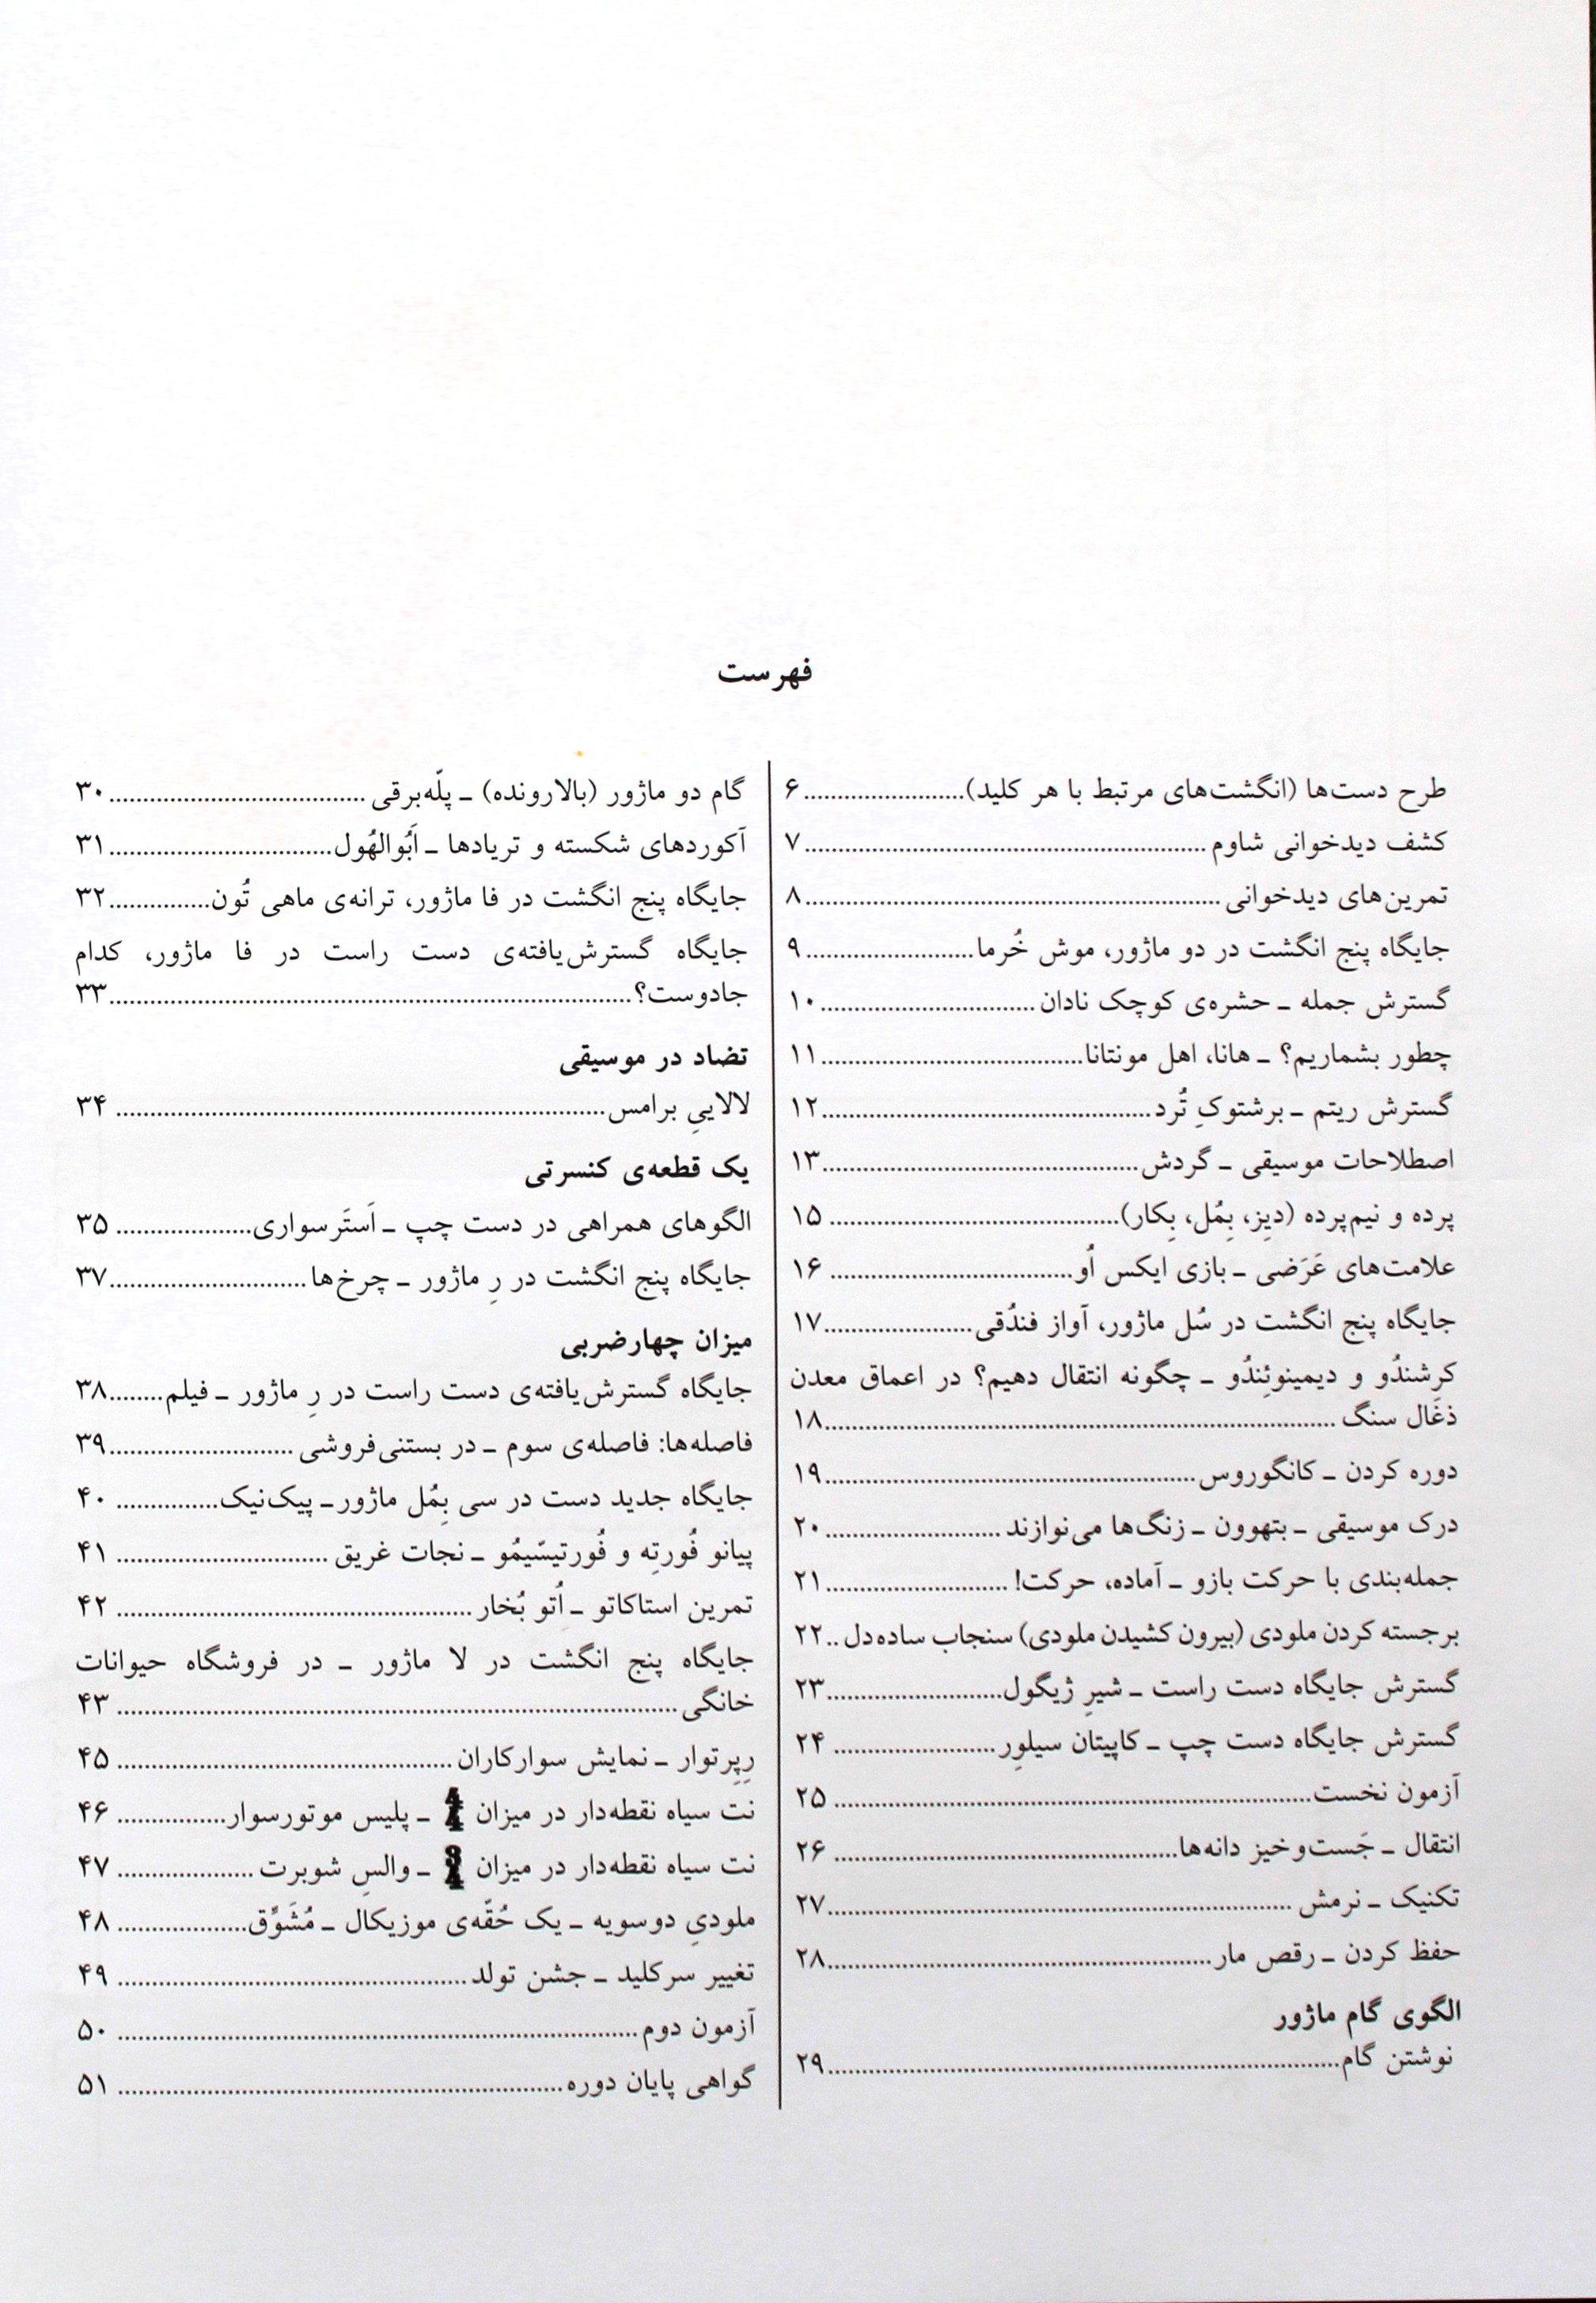 فهرست
طرح دست‌ها (انگشت‌های مرتبط با هر کلید)........................۶
کشف دیدخوانی شاوم............................................................۷
تمرین‌های دیدخوانی..............................................................۸
جایگاه پنج انگشت در دو ماژور، موش خُرما.........................۹
گسترش جمله ـ حشره‌ی کوچک نادان................................۱۰
چطور بشماریم؟ ـ هانا، اهل مونتانا.......................................۱۱
گسترش ریتم ـ برشتوکِ تُرد.................................................۱۲
اصطلاحات موسیقی ـ گردش...............................................۱۳
پرده و نیم‌پرده (دیِز، بِمُل، بِکار)........................................... ۱۵
علامت‌های عَرَضی ـ بازی ایکس اُو.................................... ۱۶
جایگاه پنج انگشت در سُل ماژور، آواز فندُقی......................۱۷
کرِشندُو و دیمینوئِندُو ـ چگونه انتقال دهیم؟ در اعماق معدن
ذغال سنگ ............................................................................۱۸
دوره کردن ـ کانگوروس.......................................................۱۹
درک موسیقی ـ بتهوون ـ زنگ‌ها می‌نوازند ..........................۲۰
جمله‌بندی با حرکت بازو ـ آماده، حرکت! ...........................۲۱
برجسته کردن ملودی (بیرون کشیدن ملودی) سنجاب ساده‌دل ..۲۲
گسترش جایگاه دست راست ـ شیرِ ژیگول..........................۲۳
گسترش جایگاه دست چپ ـ کاپیتان سیلوِر........................ ۲۴
آزمون نخست....................................................................... ۲۵
انتقال ـ جَست‌و‌خیز دانه‌ها................................................... ۲۶
تکنیک ـ نرمش .....................................................................۲۷
حفظ کردن ـ رقص مار.........................................................۲۸
الگوی گام ماژور
نوشتن گام............................................................................۲۹
گام دو ماژور (بالارونده) ـ پلّه‌برقی ......................................۳۰
آکوردهای شکسته و تریادها ـ اَبُوالهُول.................................۳۱
جایگاه پنج انگشت در فا ماژور، ترانه‌ی ماهی تُون...............۳۲
جایگاه گسترش‌یافته‌ی دست راست در فا ماژور، کدام
جادوست؟.............................................................................۳۳
تضاد در موسیقی
لالاییِ برامس......................................................................... ۳۴
یک قطعه‌ی کنسرتی
الگوهای همراهی در دست چپ ـ اَستَرسواری.................... ۳۵
جایگاه پنج انگشت در رِ ماژور ـ چرخ‌ها .............................۳۷
میزان چهارضربی
جایگاه گسترش‌یافته‌ی دست راست در رِ ماژور ـ فیلم........۳۸
فاصله‌ها: فاصله‌ی سوم ـ در بستنی‌فروشی ...........................۳۹
جایگاه جدید دست در سی بِمُل ماژور ـ پیک‌نیک............... ۴۰
پیانو فُورتِه و فُورتیسّیمُو ـ نجات غریق ............................... ۴۱
تمرین استاکاتو ـ اُتو بُخار.................................................... ۴۲
جایگاه پنج انگشت در لا ماژور ـ در فروشگاه حیوانات
خانگی................................................................................... ۴۳
رِپِرتوار ـ نمایش سوارکاران ................................................. ۴۵
نت سیاه نقطه‌دار در میزان 4/4 ـ پلیس موتورسوار................ ۴۶
نت سیاه نقطه‌دار در میزان 3/4 ـ والسِ شوبرت .................... ۴۷
ملودیِ دوسویه ـ یک حُقّه‌ی موزیکال ـ مُشَوِّق................... ۴۸
تغییر سرکلید ـ جشن تولد .................................................... ۴۹
آزمون دوم............................................................................. ۵۰
گواهی پایان دوره.................................................................. ۵۱